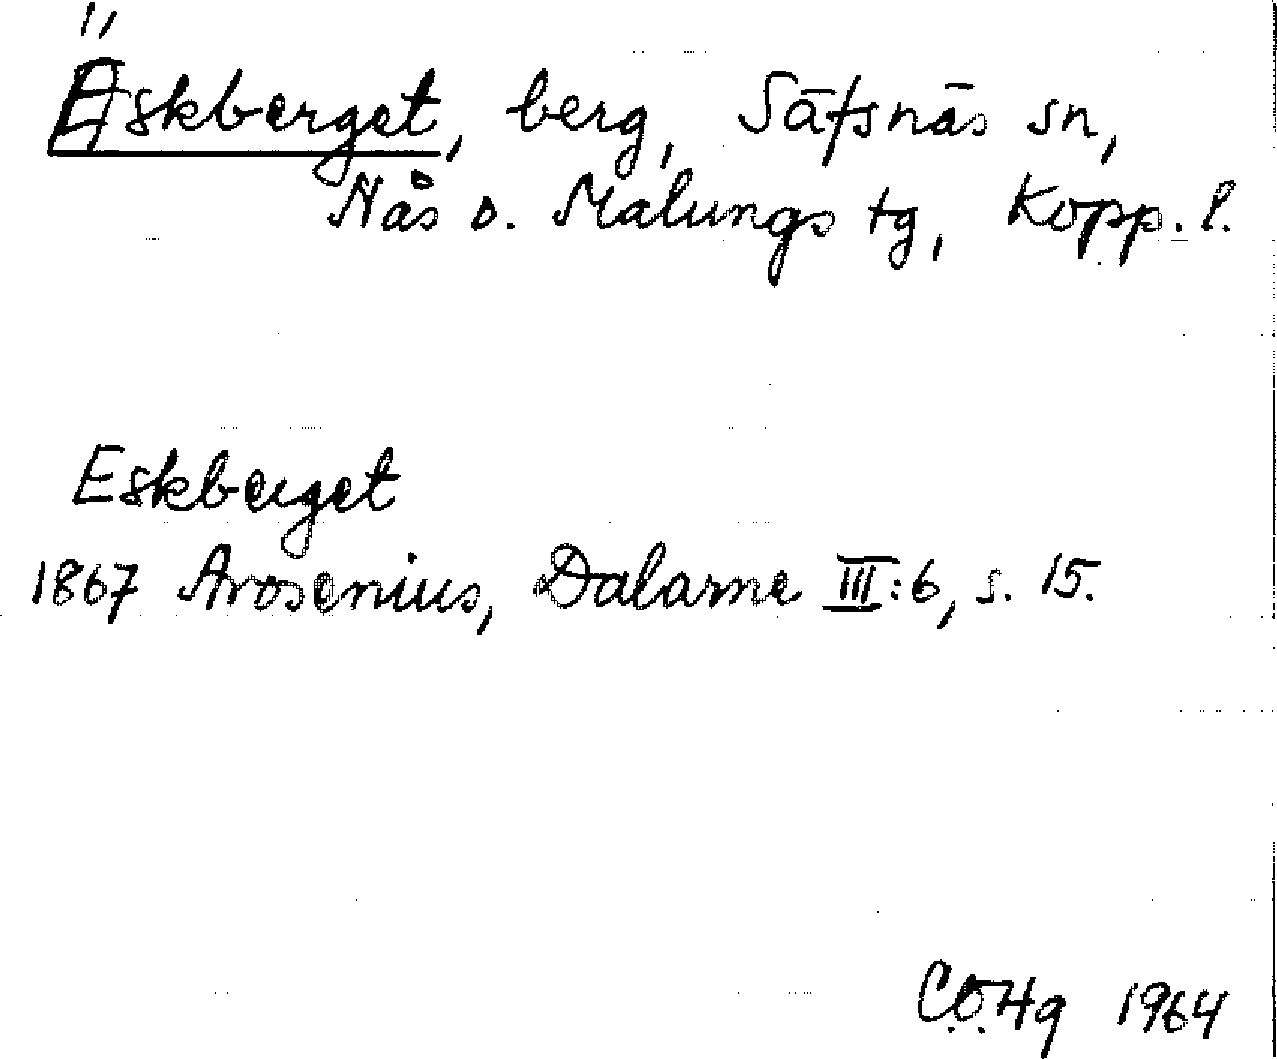 Äskberget, berg, Säfsnäs sn,
Nås o. Malungs tg, Kopp. l.
Eskberget
1867 Arosenius, Dalarne III:6, s. 15.
C.Ö.Hg 1964